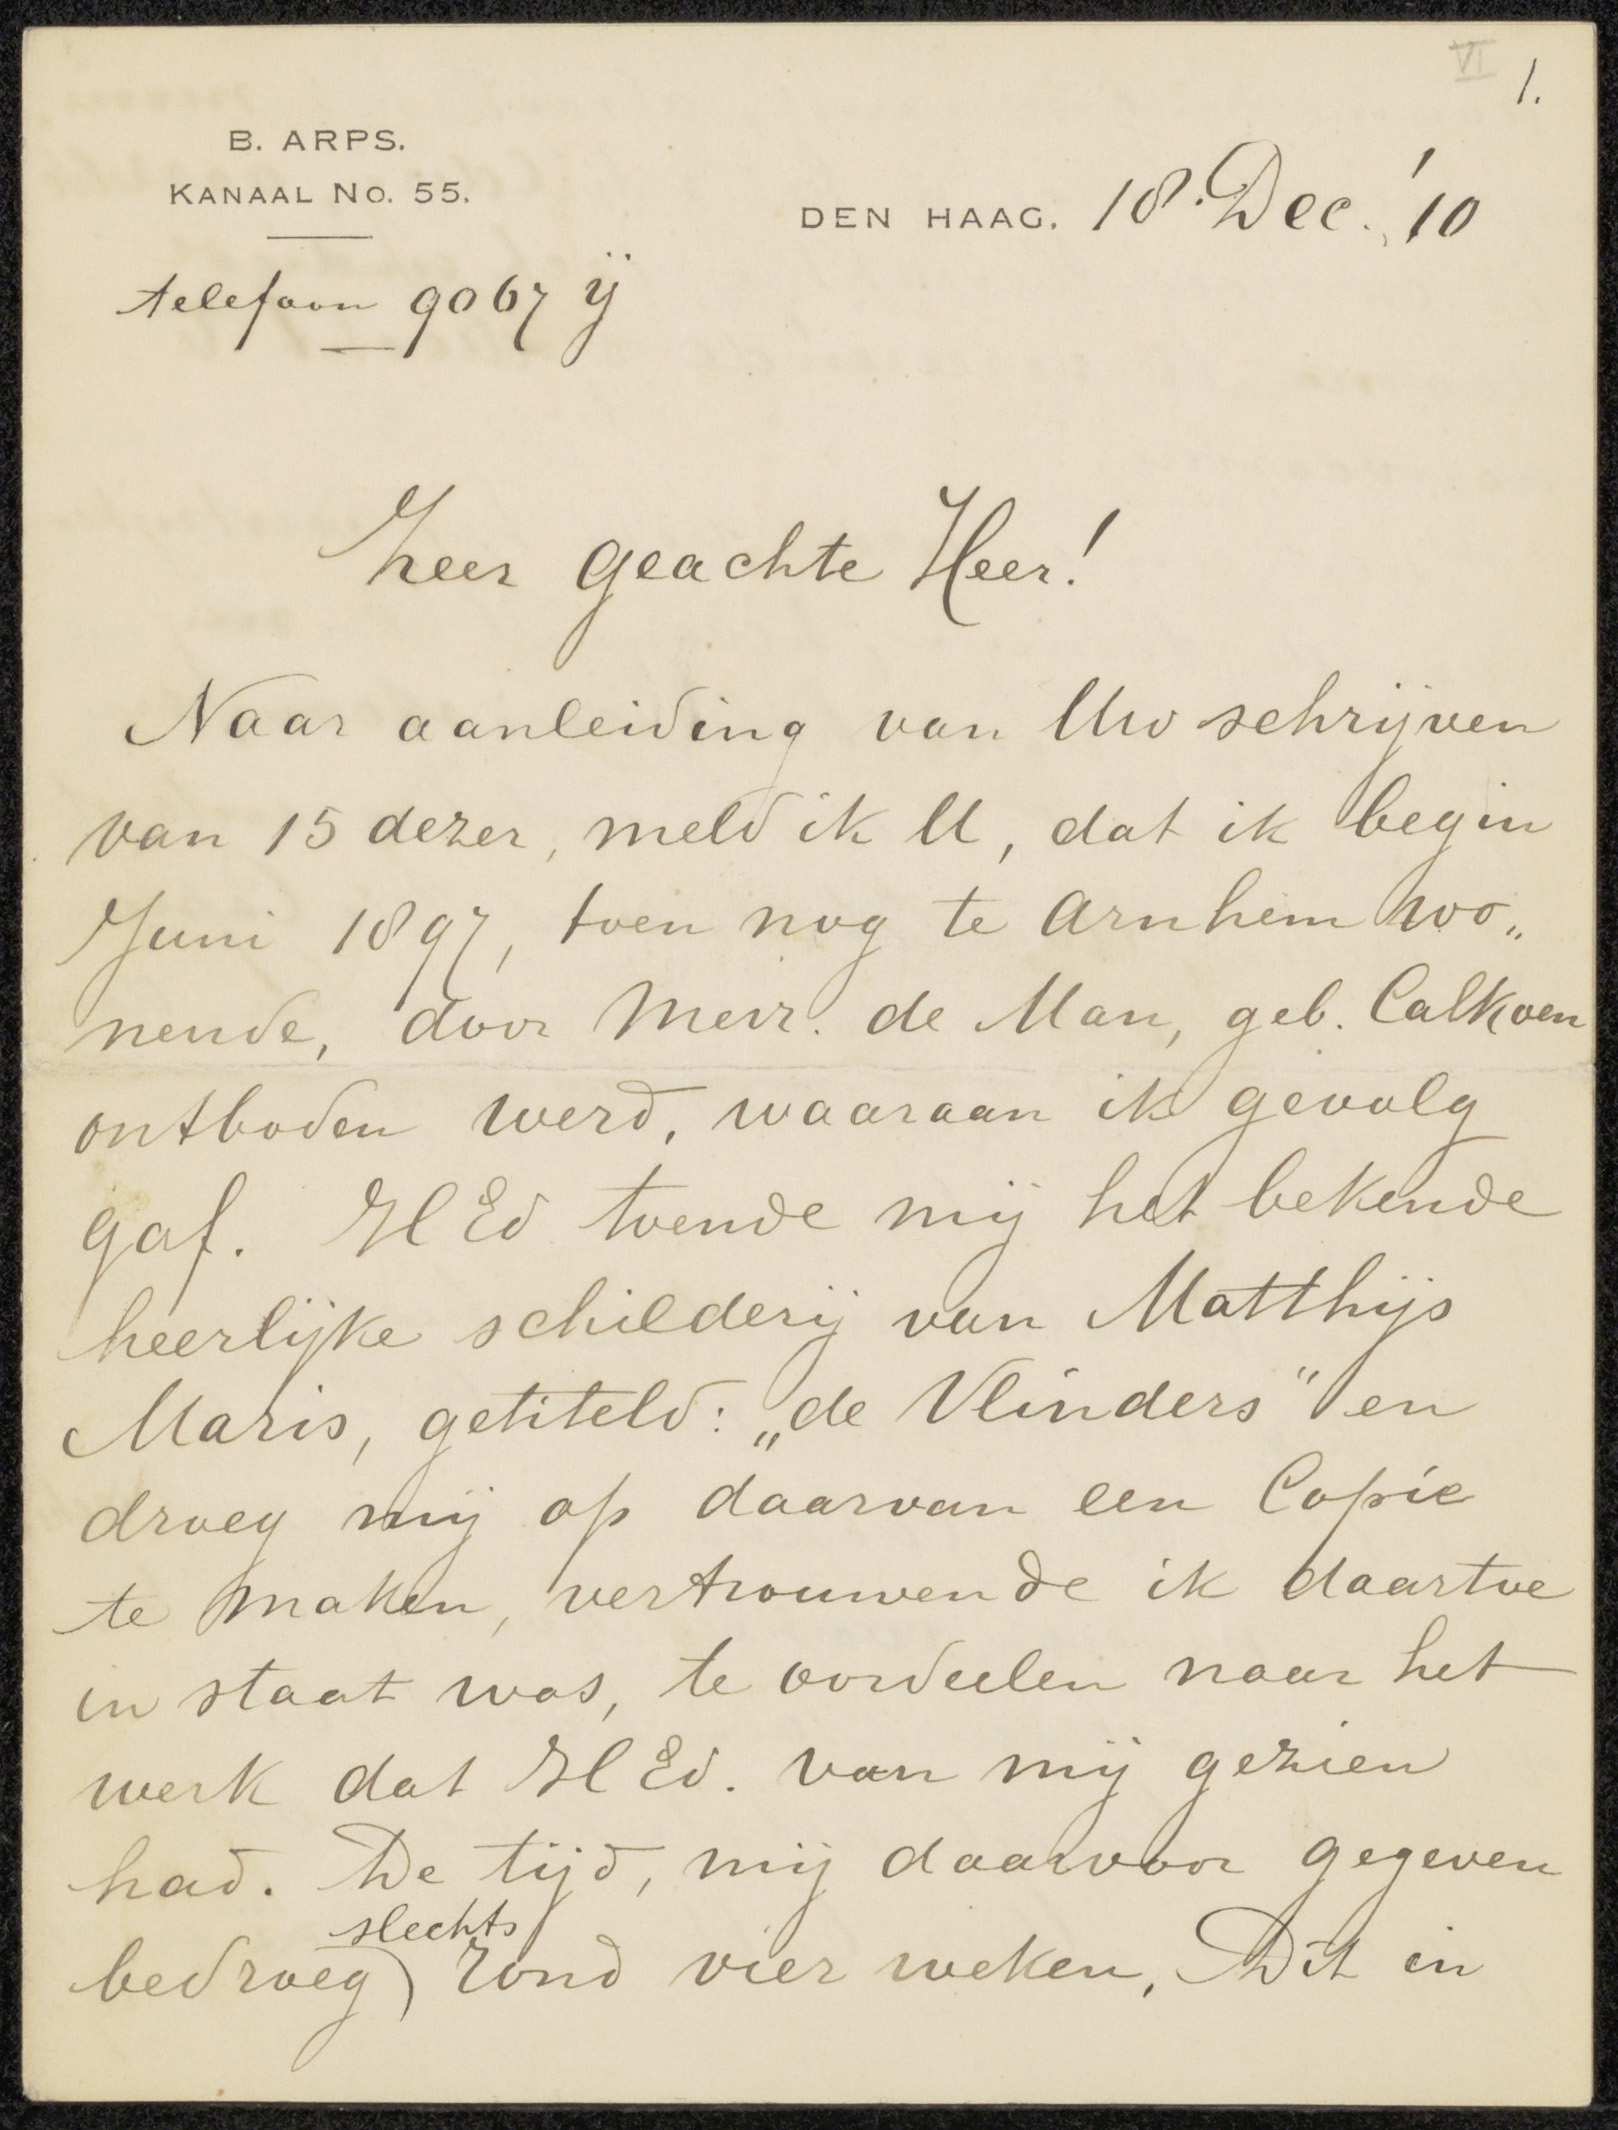 VI 1.
B. ARPS.
KANAAL No. 55.
DEN HAAG. 18. Dec. '10
telefoon 9067 ÿ
Zeer geachte Heer!
Naar aanleiding van Uw schrijven
van 15 dezer, meld ik U, dat ik begin
Juni 1897, toen nog te Arnhem wo„
nende, door Mevr. de Man, geb. Calkoen
ontboden werd, waaraan ik gevolg
gaf. HEd toonde mij het bekende
heerlijke schilderij van Matthijs
Maris, getiteld: „de Vlinders" en
droeg mij op daarvan een Copie
te maken, vertrouwende ik daartoe
in staat was, te oordeelen naar het
werk dat HEd. van mij gezien
had. De tijd, mij daarvoor gegeven
slechts
bedroeg rond vier weken, Dit in